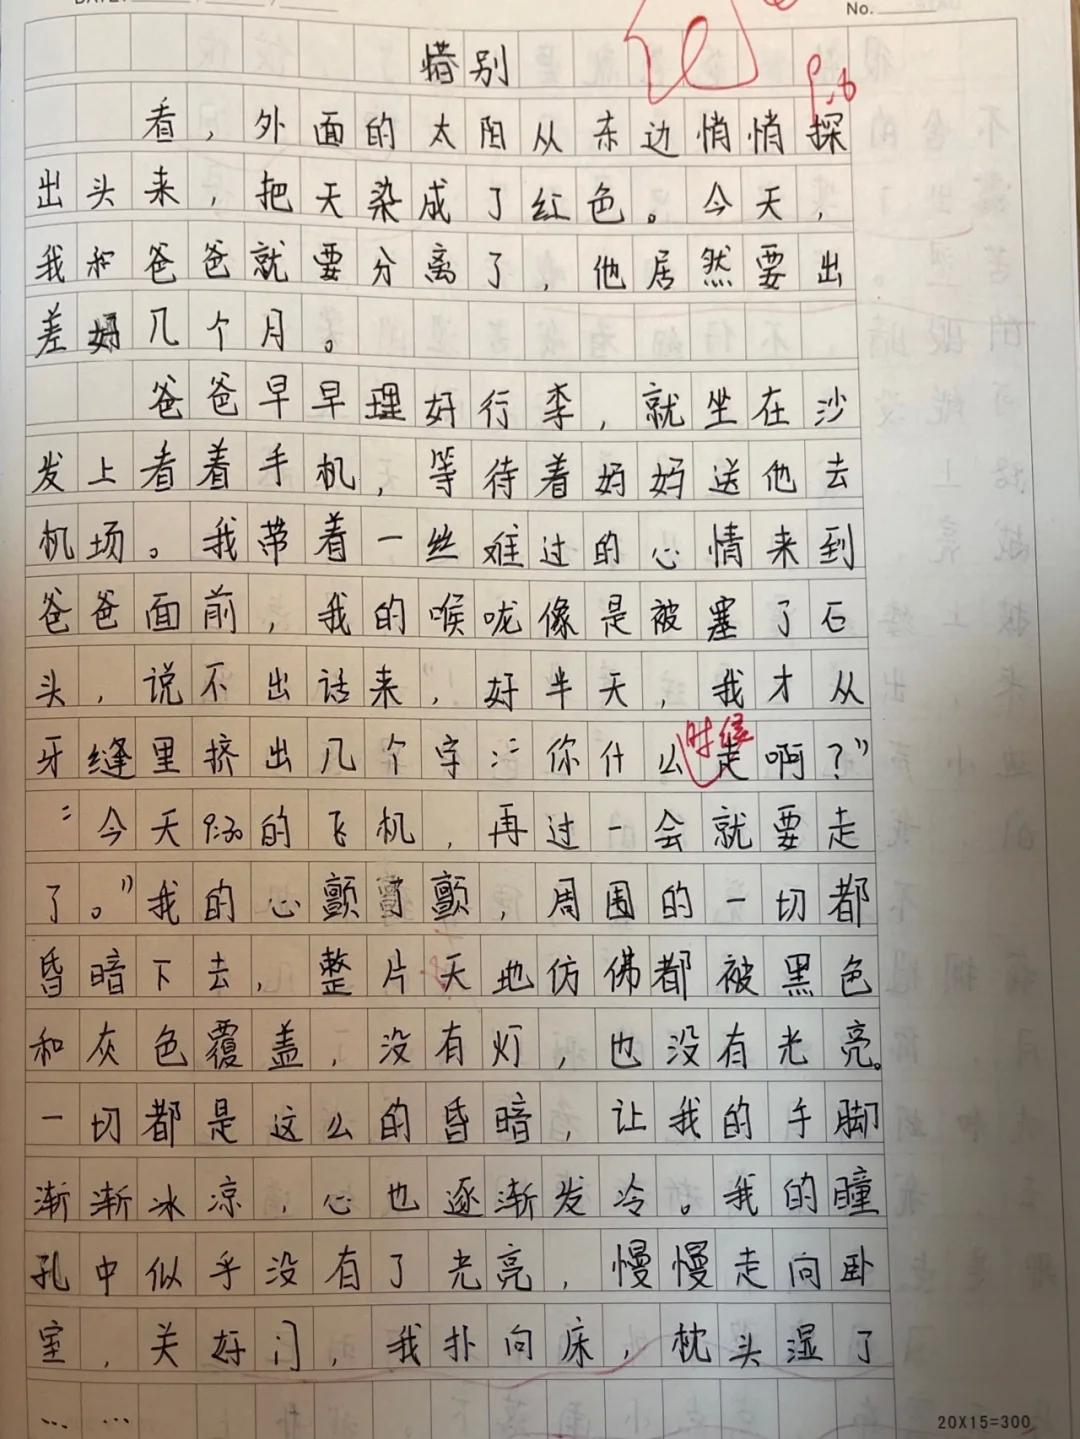 No.
惜别
看，外面的太阳从东边悄悄探
出头来，把天染成了红色。今天，
我和爸爸就要分离了，他居然要出
差好几个月。
爸爸早早理好行李，就坐在沙
发上看着手机，等待着妈妈送他去
机场。我带着一丝难过的心情来到
爸爸面前，我的喉咙像是被塞了石
头，说不出话来，好半天，我才从
牙缝里挤出几个字：“你什么时候走啊？”
“今天9:30的飞机，再过一会就要走
了。”我的心颤了颤，周围的一切都
昏暗下去，整片天地仿佛都被黑色
和灰色覆盖，没有灯，也没有光亮。
一切都是这么的昏暗，让我的手脚
渐渐冰凉，心也逐渐发冷。我的瞳
孔中似乎没有了光亮，慢慢走向卧
室，关好门，我扑向床，枕头湿了
……
20X15=300